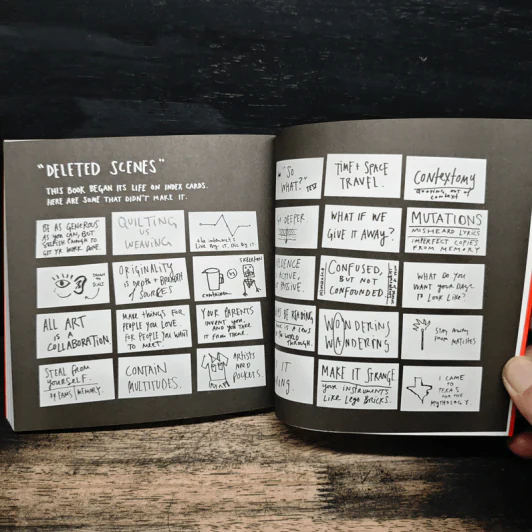 "DELETED SCENES"
THIS BOOK BEGAN ITS LIFE ON INDEX CARDS.
HERE ARE SOME THAT DIDN'T MAKE IT.
BE AS GENEROUS
AS YOU CAN, BUT
SELFISH ENOUGH TO
GET YR WORK DONE
QUILTING
VS
WEAVING
LIVE BY IT. DIE BY IT.
ORIGINALITY
IS DEPTH + BREADTH
OF SOURCES
CONTAINER
VS
SKELETON
ALL ART
IS A
COLLABORATION
MAKE THINGS FOR
PEOPLE YOU LOVE.
FOR PEOPLE YOU WANT
TO MEET
YOUR PARENTS
INVENT YOU,
AND YOU TAKE
IT FROM THERE.
STEAL FROM
YOURSELF.
MEMORY.
CONTAIN
MULTITUDES.
ARTISTS
NEED
POCKETS.
"SO
WHAT?" TEST
TIME + SPACE
TRAVEL.
CONTEXTOMY
QUOTING OUT OF
CONTEXT
DEEPER
WHAT IF WE
GIVE IT AWAY?
MUTATIONS
MISHEARD LYRICS
IMPERFECT COPIES
FROM MEMORY
CONFUSED,
BUT NOT
CONFOUNDED.
WHAT DO YOU
WANT YOUR DAYS
TO LOOK LIKE?
BE READING.
THROUGH.
WONDERING
WANDERING
STAY AWAY
FROM MATCHES
IT
MAKE IT STRANGE
YOUR INSTRUMENTS
LIKE LEGO BRICKS.
I CAME
TO
TEXAS
FOR THE
MYTHOLOGY.